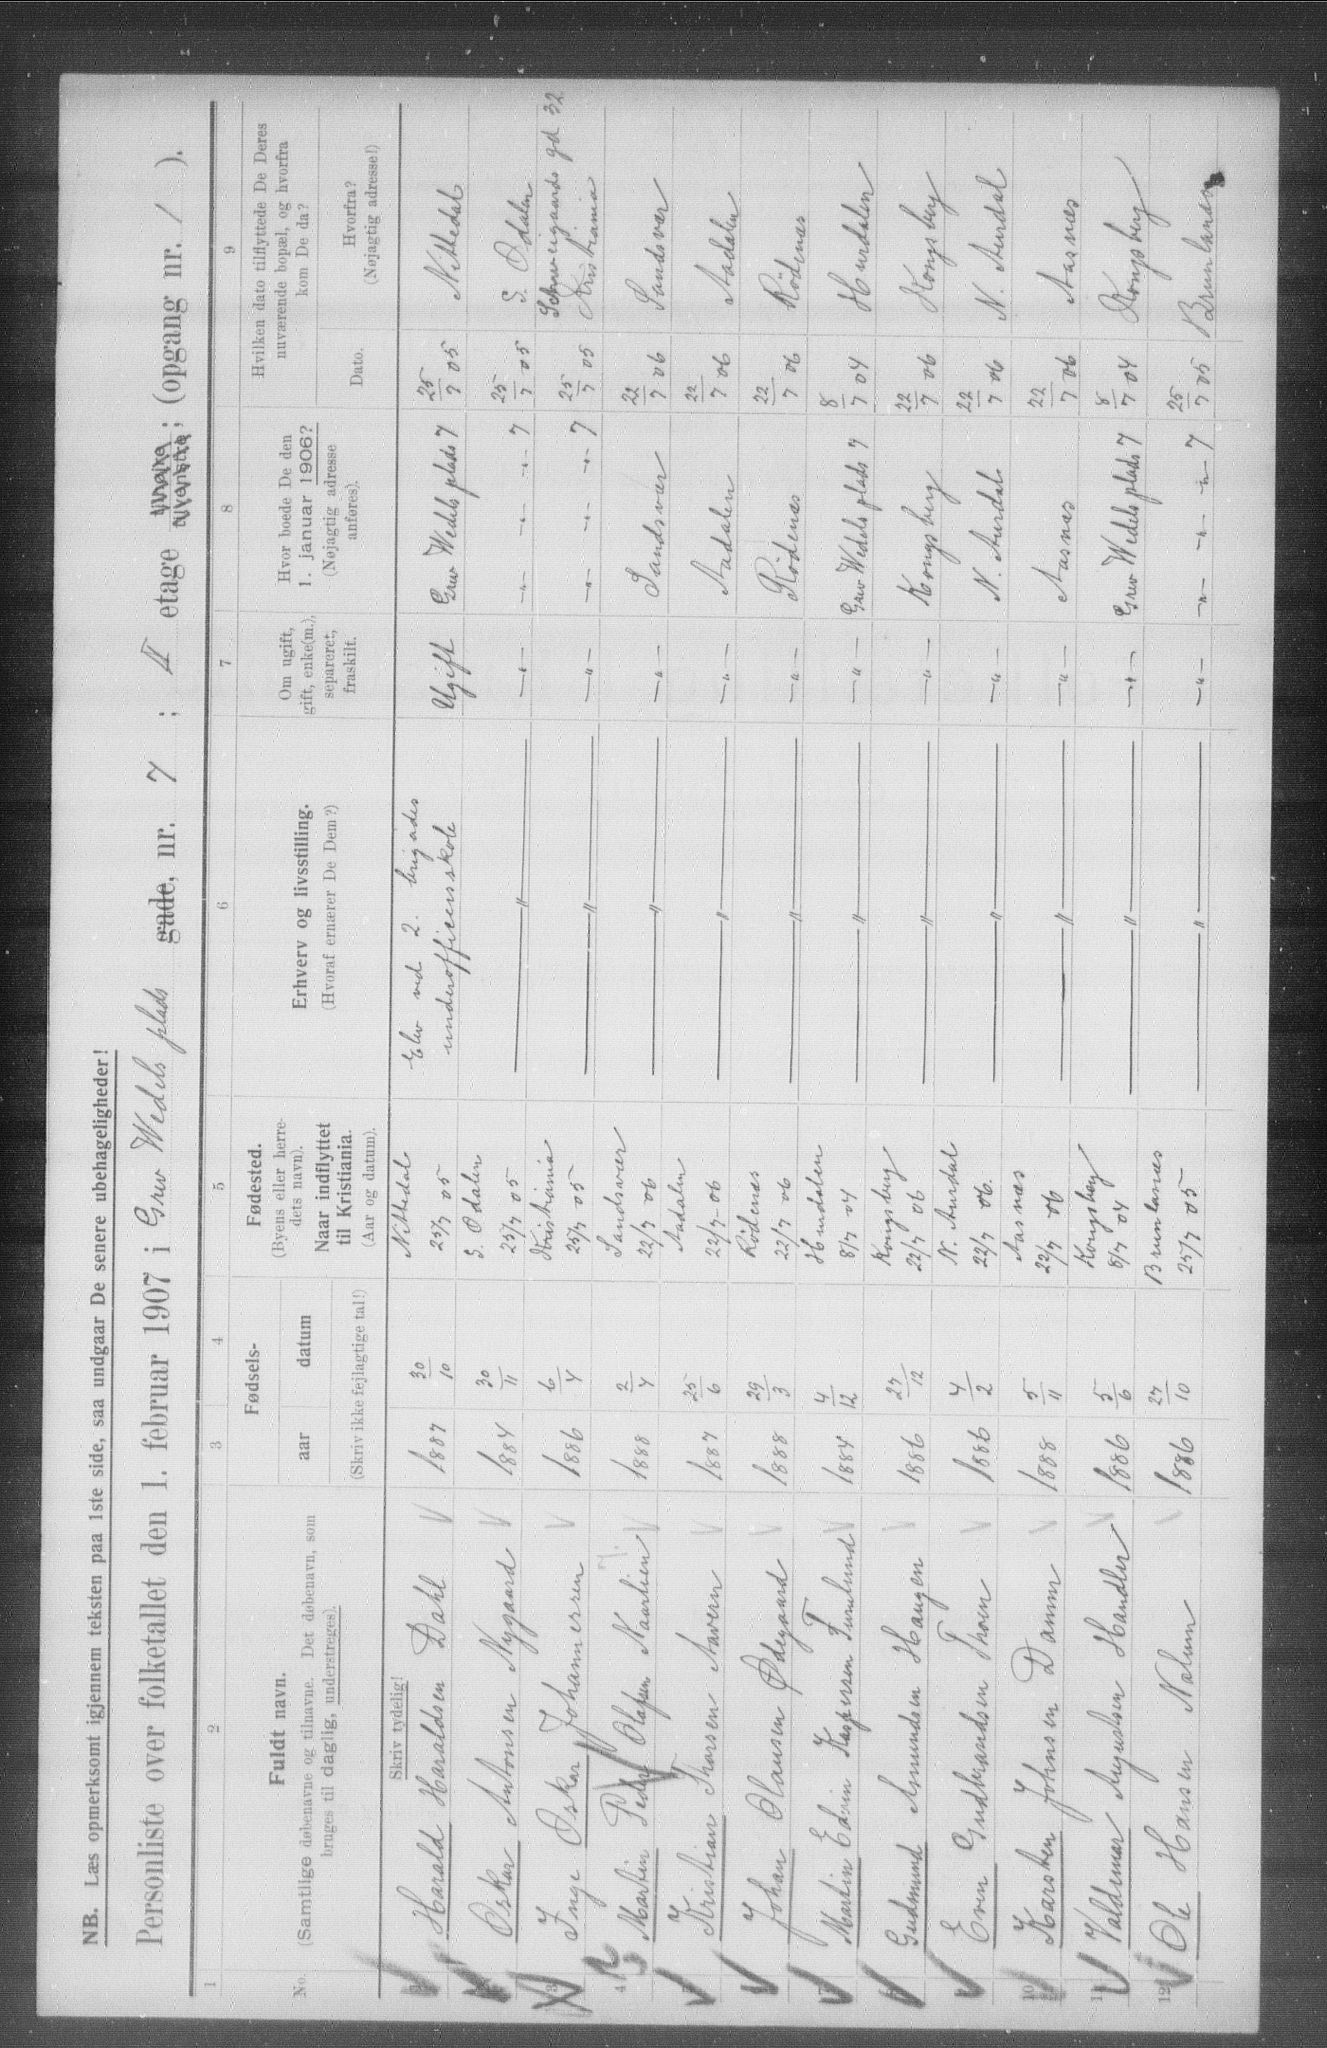 NB. Læs opmerksomt igjennem teksten paa 1ste side, saa undgaar De senere ubehageligheder!
Personliste over folketallet den 1. februar 1907 i Grev Wedels plads gade, nr. 7 ; II etage ; (opgang nr. 1 ).
1 2 3 4 5 6 7 8 9
No.
Fuldt navn.
(Samtlige døbenavne og tilnavne. Det døbenavn, som
bruges til daglig, understreges).
Fødsels-
aar datum
(Skriv ikke fejlagtige tal!)
Fødested.
(Byens eller herre-
dets navn).
Naar indflyttet
til Kristiania.
(Aar og datum).
Erhverv og livsstilling.
(Hvoraf ernærer De Dem?)
Om ugift,
gift, enke(m.),
separeret,
fraskilt.
Hvor boede De den
1. januar 1906?
(Nøjagtig adresse
anføres).
Hvilken dato tilflyttede De Deres
nuværende bopæl, og hvorfra
kom De da?
Dato.
Hvorfra?
(Nøjagtig adresse!)
Skriv tydelig!
Harald Haraldsen Dahl 1887 30/10 Nittedal 25/7 05 Elev ved 2. brigades underofficersskole Ugift Grev Wedels plads 7 25/7 05 Nittedal
Oskar Antonsen Nygaard 1884 30/11 S. Odalen 25/7 05 — " — — " — — " — 7 25/7 05 S. Odalen
3 Inge Oskar Johannessen 1886 6/4 Kristiania 25/7 05 — " — — " — — " — 7 25/7 05 Schweigaards gd 32 Kristiania
4 Martin Peder Olafsen 1888 2/4 Sandsvær 22/7 06 — " — — " — Sandsvær 22/7 06 Sandsvær
Kristian Thorsen Aavern 1887 25/6 Aadalen 22/7 06 — " — — " — Aadalen 22/7 06 Aadalen
Johan Olausen Ødegaard 1888 29/3 Rödenæs 22/7 06 — " — — " — Rödenæs 22/7 06 Rödenæs
7 Martin Edvin Kaspersen 1884 4/12 Hurdalen 8/7 04 — " — — " — Grev Wedels plads 7 8/7 04 Hurdalen
Gudmund Amundsen Haugen 1886 27/12 Kongsberg 22/7 06 — " — — " — Kongsberg 22/7 06 Kongsberg
Even Gudbrandsen Thoen 1886 4/2 N. Aurdal 22/7 06. — " — — " — N. Aurdal 22/7 06 N. Aurdal
10 Karsten Johnsen Damm 1888 5/11 Aasnæs 22/7 06 — " — — " — Aasnæs 22/7 06 Aasnæs
11 Valdemar Augustsen Handler 1886 5/6 Kongsberg 8/7 04 — " — — " — Grev Wedels plads 7 8/7 04 Kongsberg
12 Ole Hansen Nalum 1886 27/10 Brunlanæs 25/7 05 — " — — " — — " — 7 25/7 05 Brunlanæs